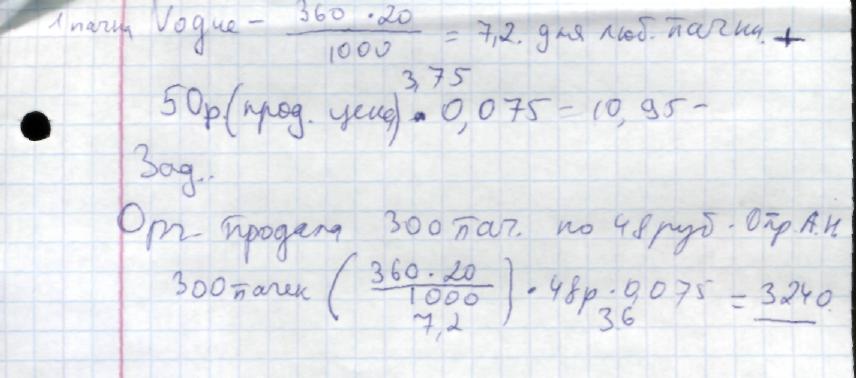 1 пачка Vogue - 360 · 20 / 1000 = 7,2. для люб. пачки. +
3,75
50р (прод. цена) · 0,075 = 10,95 -
Зад..
Орг- продала 300 пач. по 48 руб. Опр. А.Н.
300 пачек ( 360 · 20 / 1000 ) · 48р · 0,075 = 3240.
7,2 36